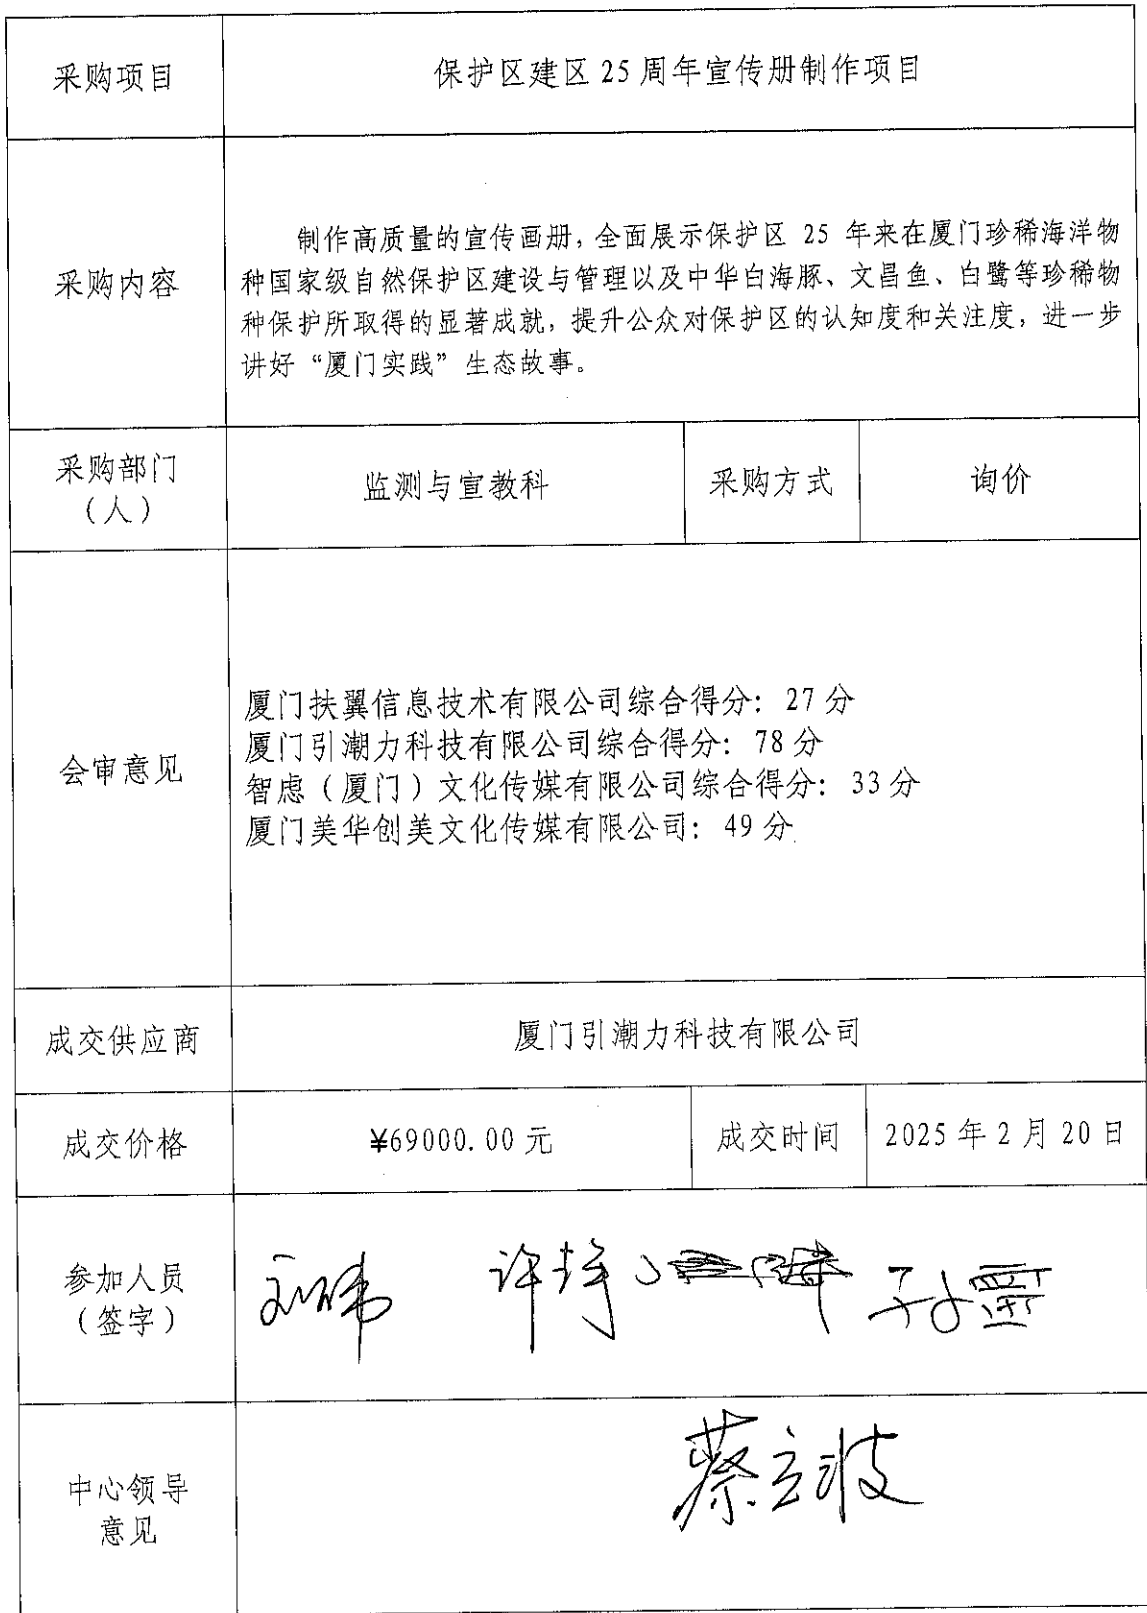 采购项目
保护区建区 25 周年宣传册制作项目
采购内容
制作高质量的宣传画册，全面展示保护区 25 年来在厦门珍稀海洋物
种国家级自然保护区建设与管理以及中华白海豚、文昌鱼、白鹭等珍稀物
种保护所取得的显著成就，提升公众对保护区的认知度和关注度，进一步
讲好“厦门实践”生态故事。
采购部门
（人）
监测与宣教科
采购方式
询价
会审意见
厦门扶翼信息技术有限公司综合得分：27 分
厦门引潮力科技有限公司综合得分：78 分
智虑（厦门）文化传媒有限公司综合得分：33 分
厦门美华创美文化传媒有限公司：49 分
成交供应商
厦门引潮力科技有限公司
成交价格
¥69000.00 元
成交时间
2025 年 2 月 20 日
参加人员
（签字）
中心领导
意见
蔡立波